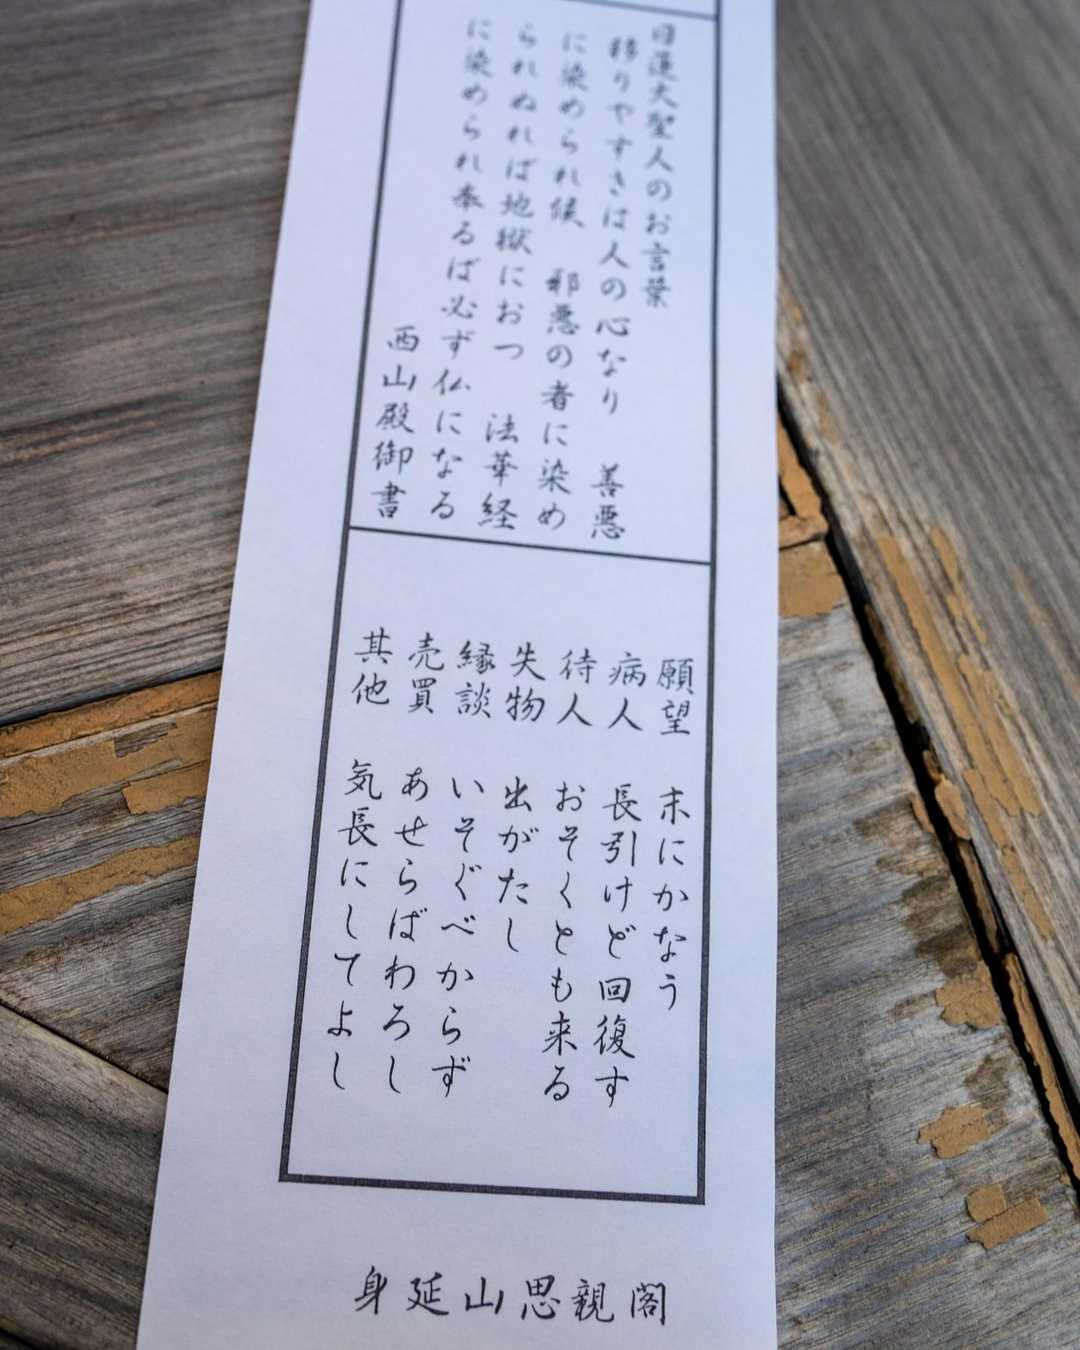 日蓮大聖人のお言葉
移りやすきは人の心なり　善悪
に染められ候　邪悪の者に染め
られぬれば地獄におつ　法華経
に染められ奉るば必ず仏になる
西山殿御書
願望　末にかなう
病人　長引けど回復す
待人　おそくとも来る
失物　出がたし
縁談　いそぐべからず
売買　あせらばわろし
其他　気長にしてよし
身延山思親閣